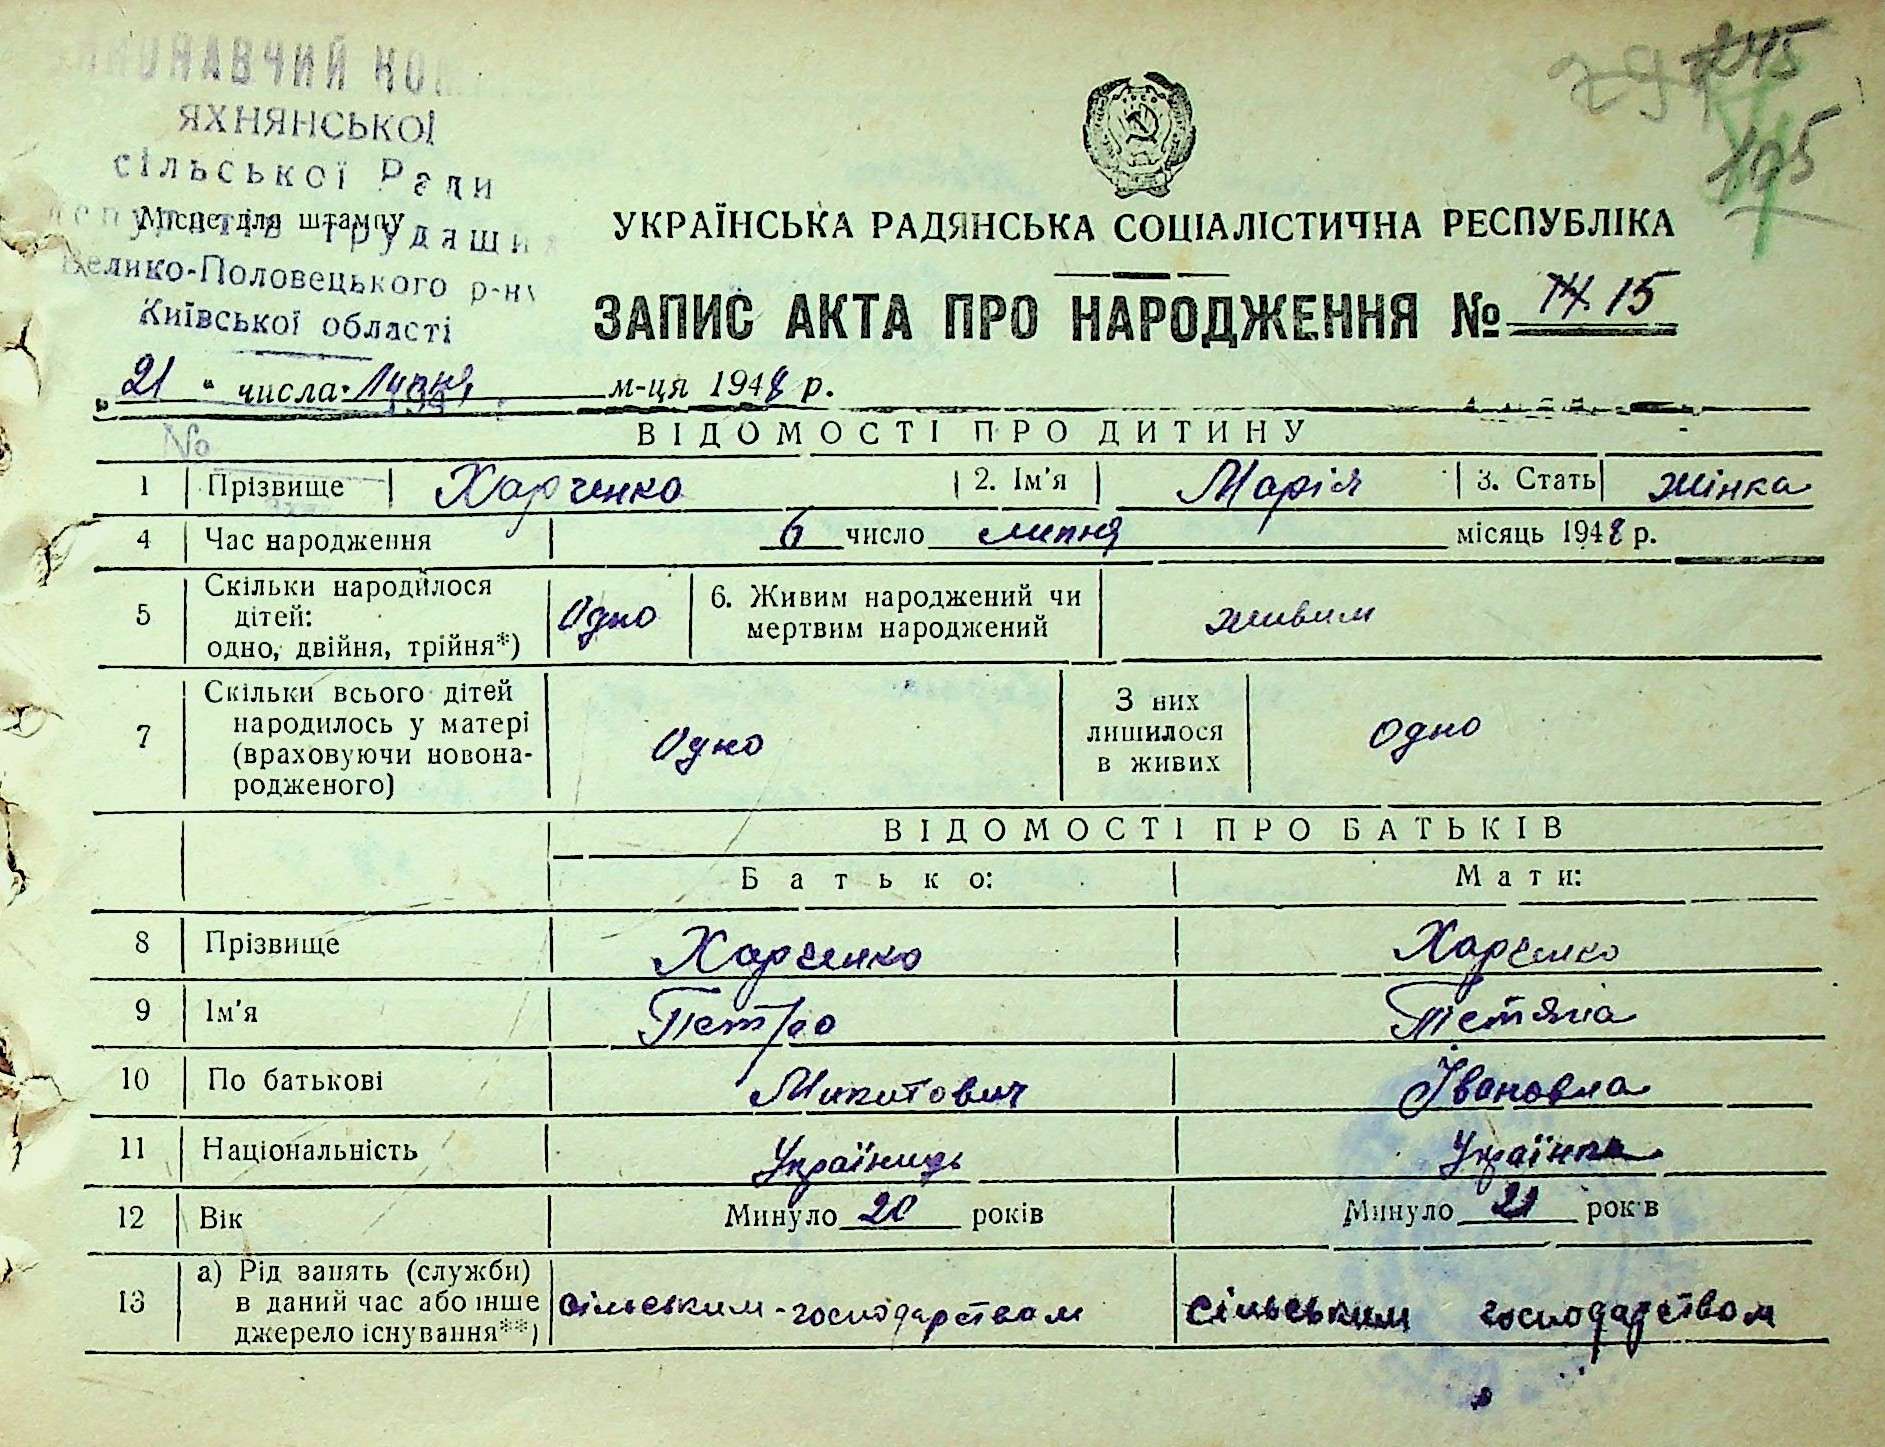 ВИКОНАВЧИЙ КОМ
ЯХНЯНСЬКОЇ
сільської Ради
депутатів трудящих
Місце для штампу
Велико-Половецького р-ну
Київської області
245
195
УКРАЇНСЬКА РАДЯНСЬКА СОЦІАЛІСТИЧНА РЕСПУБЛІКА
ЗАПИС АКТА ПРО НАРОДЖЕННЯ № 14 15
„ 21 " числа липня м-ця 1948 р.
№
ВІДОМОСТІ ПРО ДИТИНУ
1 Прізвище Харченко 2. Ім'я Марія 3. Стать жінка
4 Час народження 6 число липня місяць 1948 р.
5 Скільки народилося дітей: одно, двійня, трійня*) Одно 6. Живим народжений чи мертвим народжений живим
7 Скільки всього дітей народилось у матері (враховуючи новонародженого) Одно З них лишилося в живих одно
ВІДОМОСТІ ПРО БАТЬКІВ
Батько: Мати:
8 Прізвище Харченко Харченко
9 Ім'я Петро Тетяна
10 По батькові Микитович Івановна
11 Національність Українець Українка
12 Вік Минуло 20 років Минуло 21 років
13 а) Рід занять (служби) в даний час або інше джерело існування**) сільським-господарством сільським господарством